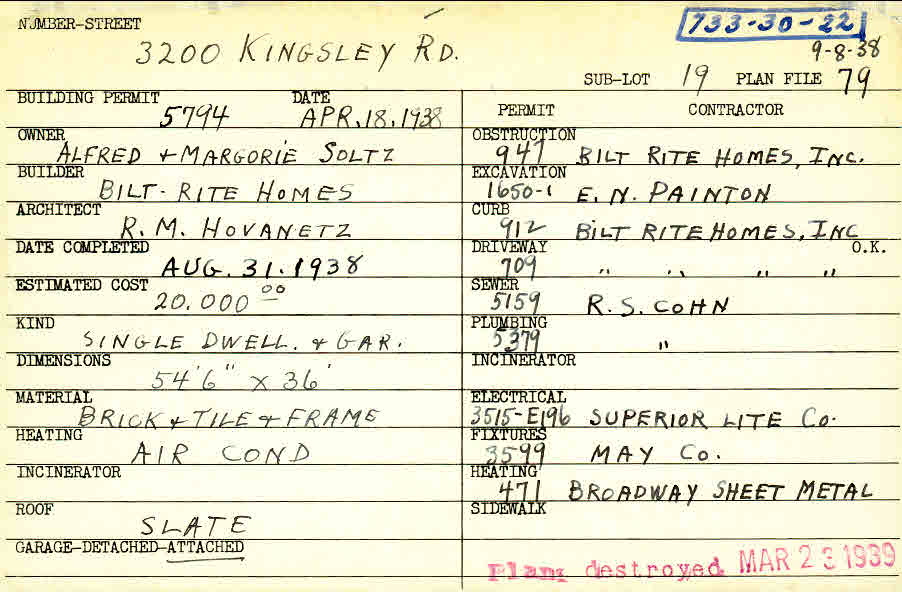 NUMBER-STREET
733-30-22
3200 KINGSLEY RD.
9-8-38
SUB-LOT 19 PLAN FILE 79
BUILDING PERMIT 5794 DATE APR. 18, 1938
PERMIT CONTRACTOR
OWNER ALFRED + MARGORIE SOLTZ
OBSTRUCTION 947 BILT RITE HOMES, INC.
BUILDER BILT-RITE HOMES
EXCAVATION 1650-1 E. N. PAINTON
ARCHITECT R. M. HOVANETZ
CURB 912 BILT RITE HOMES, INC
DATE COMPLETED AUG. 31. 1938
DRIVEWAY 709 " " " " O.K.
ESTIMATED COST 20.000 00
SEWER 5159 R. S. COHN
KIND SINGLE DWELL. + GAR.
PLUMBING 5379 "
DIMENSIONS 54'6" X 36'
INCINERATOR
MATERIAL BRICK + TILE + FRAME
ELECTRICAL 3515-E196 SUPERIOR LITE Co.
HEATING AIR COND
FIXTURES 3599 MAY Co.
INCINERATOR
HEATING 471 BROADWAY SHEET METAL
ROOF SLATE
SIDEWALK
GARAGE-DETACHED-ATTACHED
Plans destroyed MAR 23 1939